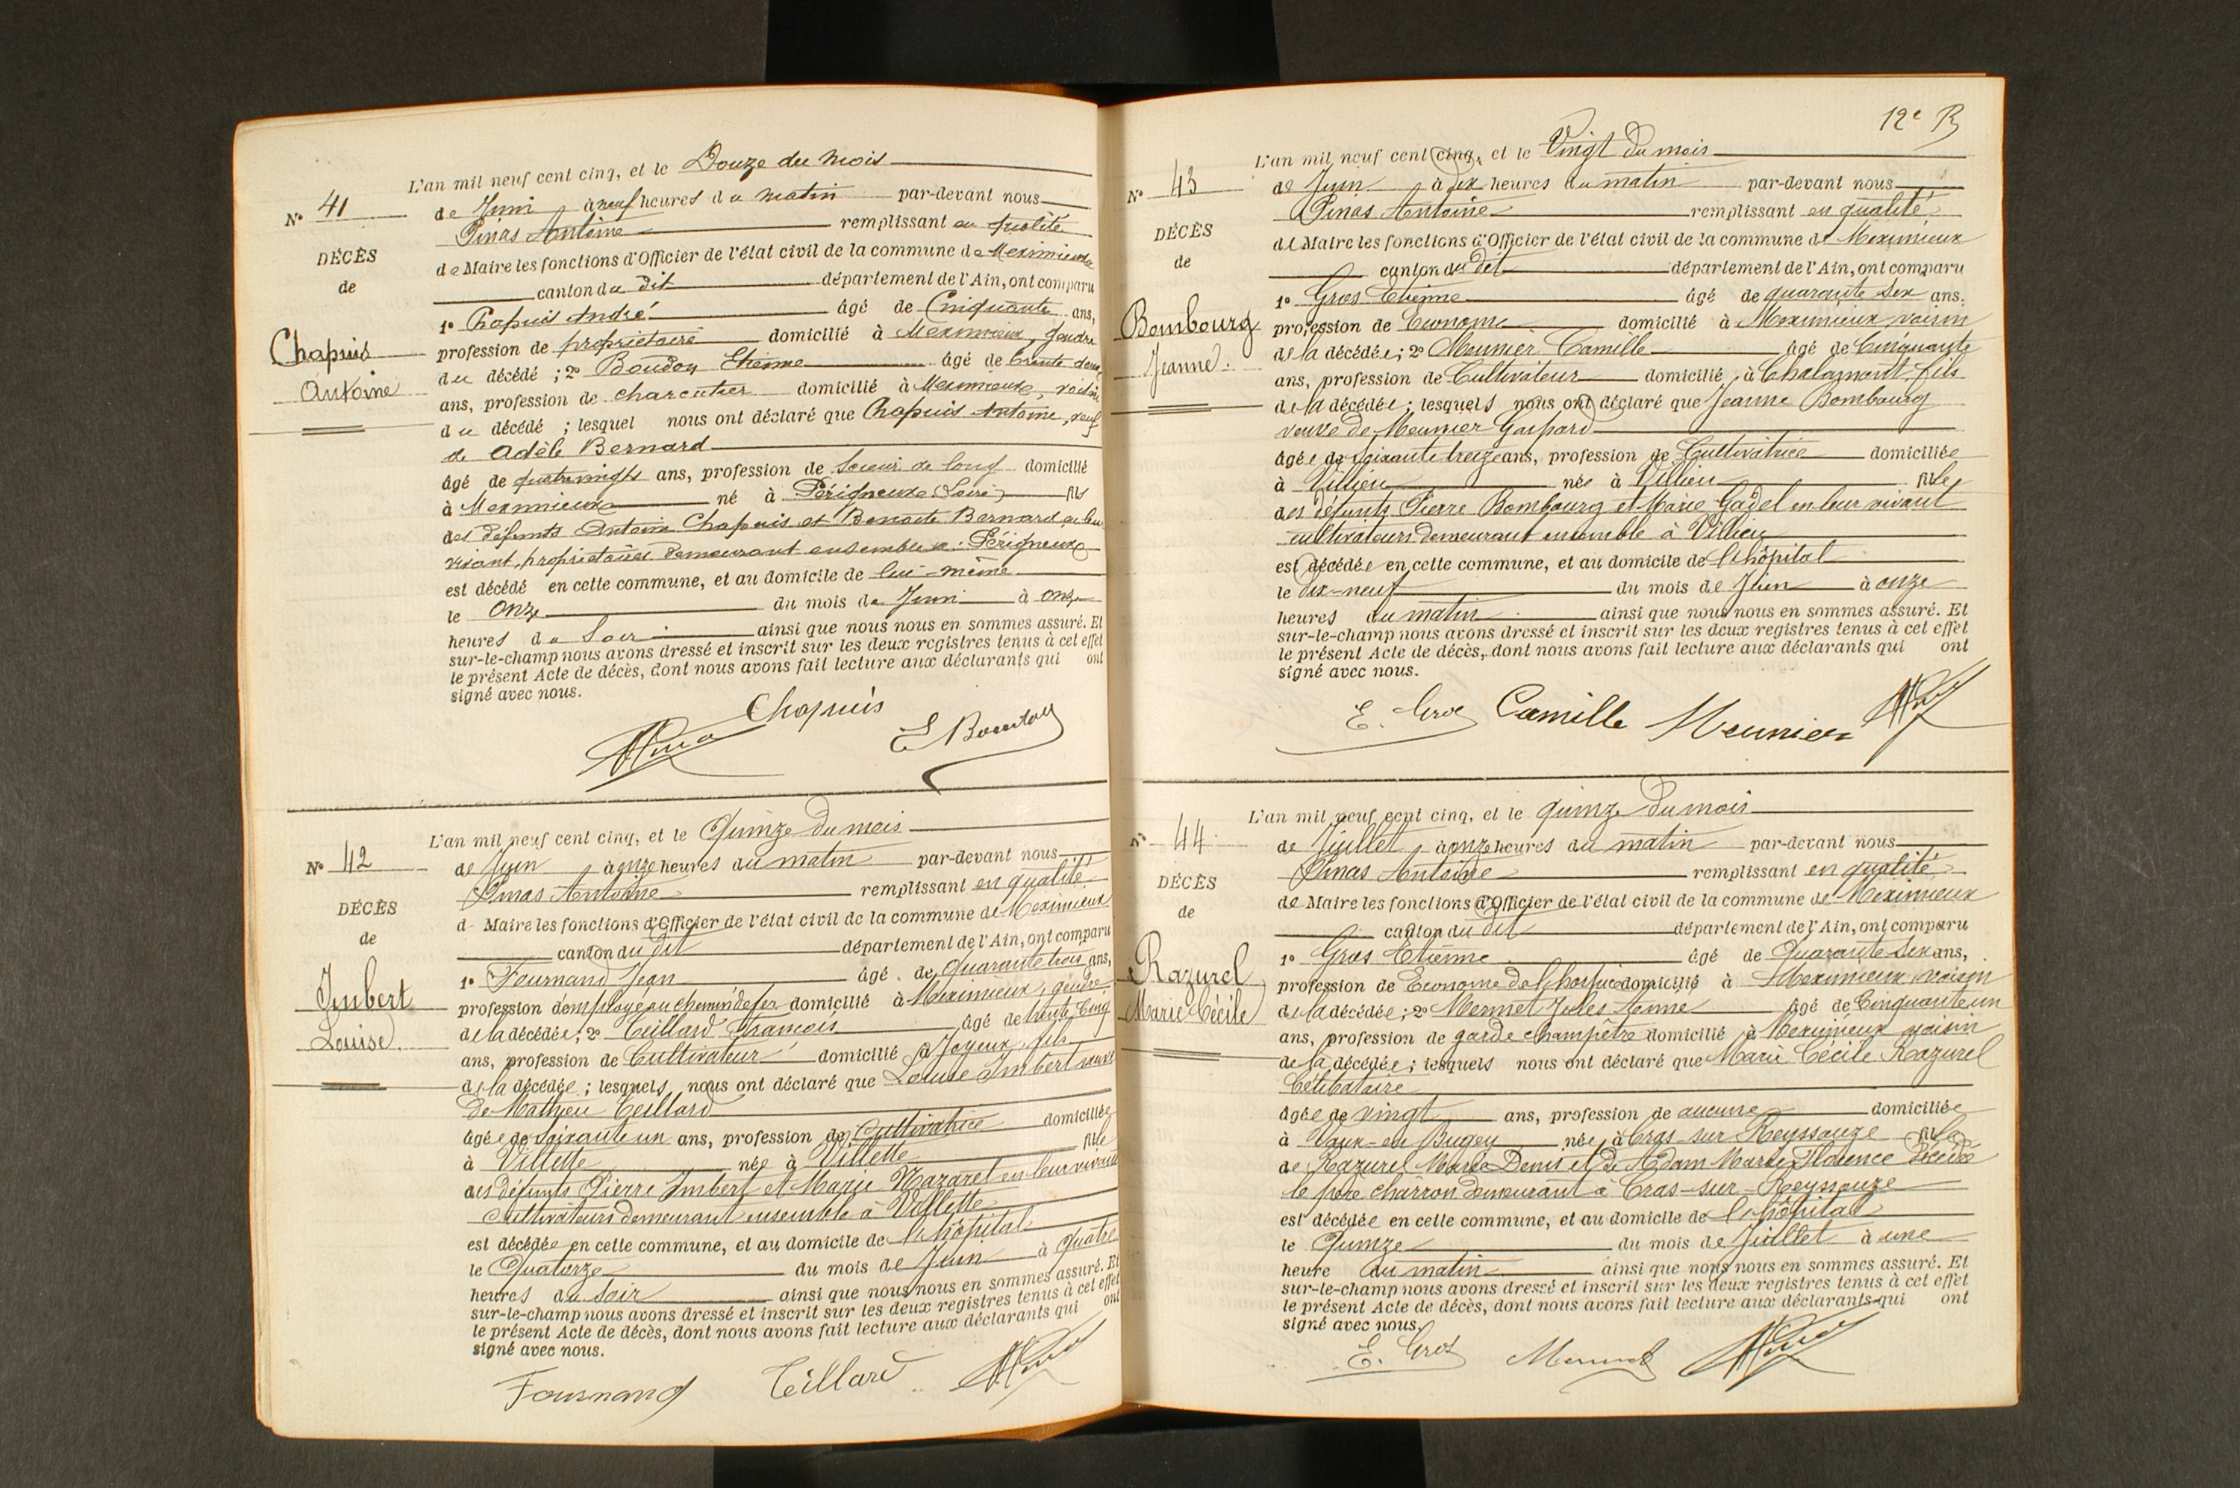 L'an mil neuf cent cinq, et le Douze du mois
N° 41
de Juin à neuf heures du matin par-devant nous
Pinas Antoine remplissant en qualité
DÉCÈS
de Maire les fonctions d'Officier de l'état civil de la commune de Meximieux
de
canton du dit département de l'Ain, ont comparu
1° Chapuis André âgé de Cinquante ans,
Chapuis
Antoine
profession de propriétaire domicilié à Meximieux, gendre
du décédé ; 2° Boudoy Etienne âgé de trente deux
ans, profession de charcutier domicilié à Meximieux, voisin
du décédé ; lesquel nous ont déclaré que Chapuis Antoine, veuf
de Adèle Bernard
âgé de quatrevingts ans, profession de Scieur de long domicilié
à Meximieux né à Périgneux (Loire) fils
des défunts Antoine Chapuis et Benoite Bernard en leu
vivant, propriétaires demeurant ensemble a Périgneux
est décédé en cette commune, et au domicile de lui-même
le Onze du mois de Juin à onze
heures du Soir ainsi que nous nous en sommes assuré. Et
sur-le-champ nous avons dressé et inscrit sur les deux registres tenus à cet effet
le présent Acte de décès, dont nous avons fait lecture aux déclarants qui ont
signé avec nous.
Chapuis
E Boudoy
L'an mil neuf cent cinq, et le Quinze du mois
N° 42
de Juin à onze heures du matin par-devant nous
Pinas Antoine remplissant en qualité
DÉCÈS
d Maire les fonctions d'Officier de l'état civil de la commune de Meximieux
de
canton du dit département de l'Ain, ont comparu
1° Fournand Jean âgé de Quarante trois ans,
Imbert
Louise
profession d'employé au chemin de fer domicilié à Meximieux, gendre
de la décédée ; 2° Teillard François âgé de trente cinq
ans, profession de Cultivateur domicilié à Joyeux, fils
de la décédée ; lesquels nous ont déclaré que Louise Imbert veuve
de Mathieu Teillard
âgée de soixante un ans, profession de Cultivatrice domiciliée
à Villette née à Villette fille
des défunts Pierre Imbert et Marie Nazaret en leur vivant
Cultivateurs demeurant ensemble à Villette
est décédée en cette commune, et au domicile de l'hôpital
le Quatorze du mois de Juin à quatre
heures du Soir ainsi que nous nous en sommes assuré. Et
sur-le-champ nous avons dressé et inscrit sur les deux registres tenus à cet effet
le présent Acte de décès, dont nous avons fait lecture aux déclarants qui ont
signé avec nous.
Fournand Teillard
12e
L'an mil neuf cent cinq, et le Vingt du mois
N° 43
de Juin à dix heures du matin par-devant nous
Pinas Antoine remplissant en qualité
DÉCÈS
de Maire les fonctions d'Officier de l'état civil de la commune de Meximieux
de
canton du dit département de l'Ain, ont comparu
1° Gros Etienne âgé de quarante six ans,
Bombourg
Jeanne
profession de Econome domicilié à Meximieux voisin
de la décédée ; 2° Meunier Camille âgé de Cinquante
ans, profession de Cultivateur domicilié à Chalamont, fils
de la décédée ; lesquels nous ont déclaré que Jeanne Bombourg
veuve de Meunier Gaspard
âgée de soixante treize ans, profession de Cultivatrice domiciliée
à Villieu née à Villieu fille
des défunts Pierre Bombourg et Marie Gadel en leur vivant
cultivateurs demeurant ensemble à Villieu
est décédée en cette commune, et au domicile de l'hôpital
le dix-neuf du mois de Juin à onze
heures du matin ainsi que nous nous en sommes assuré. Et
sur-le-champ nous avons dressé et inscrit sur les deux registres tenus à cet effet
le présent Acte de décès, dont nous avons fait lecture aux déclarants qui ont
signé avec nous.
E. Gros Camille Meunier
L'an mil neuf cent cinq, et le quinze du mois
N° 44
de Juillet à onze heures du matin par-devant nous
Pinas Antoine remplissant en qualité
DÉCÈS
de Maire les fonctions d'Officier de l'état civil de la commune de Meximieux
de
canton du dit département de l'Ain, ont comparu
1° Gros Etienne âgé de Quarante Six ans,
Razurel
Marie Cécile
profession de Econome de l'hospice domicilié à Meximieux voisin
de la décédée ; 2° Mermet Jules âgé de Cinquante un
ans, profession de garde champêtre domicilié à Meximieux voisin
de la décédée ; lesquels nous ont déclaré que Marie Cécile Razurel
Célibataire
âgée de vingt ans, profession de aucune domiciliée
à Vaux-en Bugey née à Cras sur Reyssouze fille
de Razurel Marie Denis et de Adam Marie Florence décédée
le père charron demeurant à Cras-sur-Reyssouze
est décédée en cette commune, et au domicile de l'hôpital
le Quinze du mois de Juillet à une
heure du matin ainsi que nous nous en sommes assuré. Et
sur-le-champ nous avons dressé et inscrit sur les deux registres tenus à cet effet
le présent Acte de décès, dont nous avons fait lecture aux déclarants qui ont
signé avec nous.
E. Gros Mermet